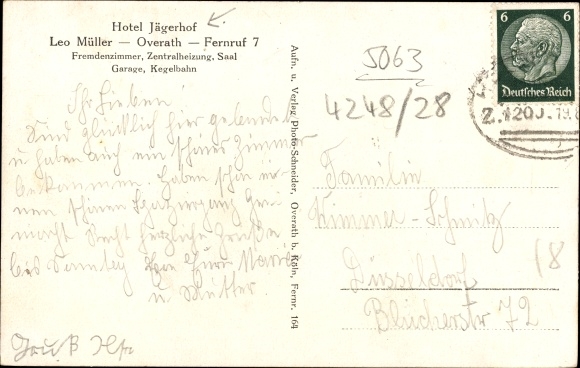 Hotel Jägerhof
Leo Müller — Overath — Fernruf 7
Fremdenzimmer, Zentralheizung, Saal
Garage, Kegelbahn
Ihr Lieben!
Sind glücklich hier gelandet
u. haben auch ein schönes Zimmer
bekommen. Haben schon ei-
nen schönen Spaziergang ge-
macht. Recht herzliche Grüße
bis Sonntag
u. Mutter.
Gruß
Aufn. u. Verlag Photo-Schneider, Overath b. Köln, Fernr. 164
5063
4248/28
6 6
Deutsches Reich
Z.1200
Familie
Kimmer-Schmitz
Düsseldorf
Blücherstr 72
/8